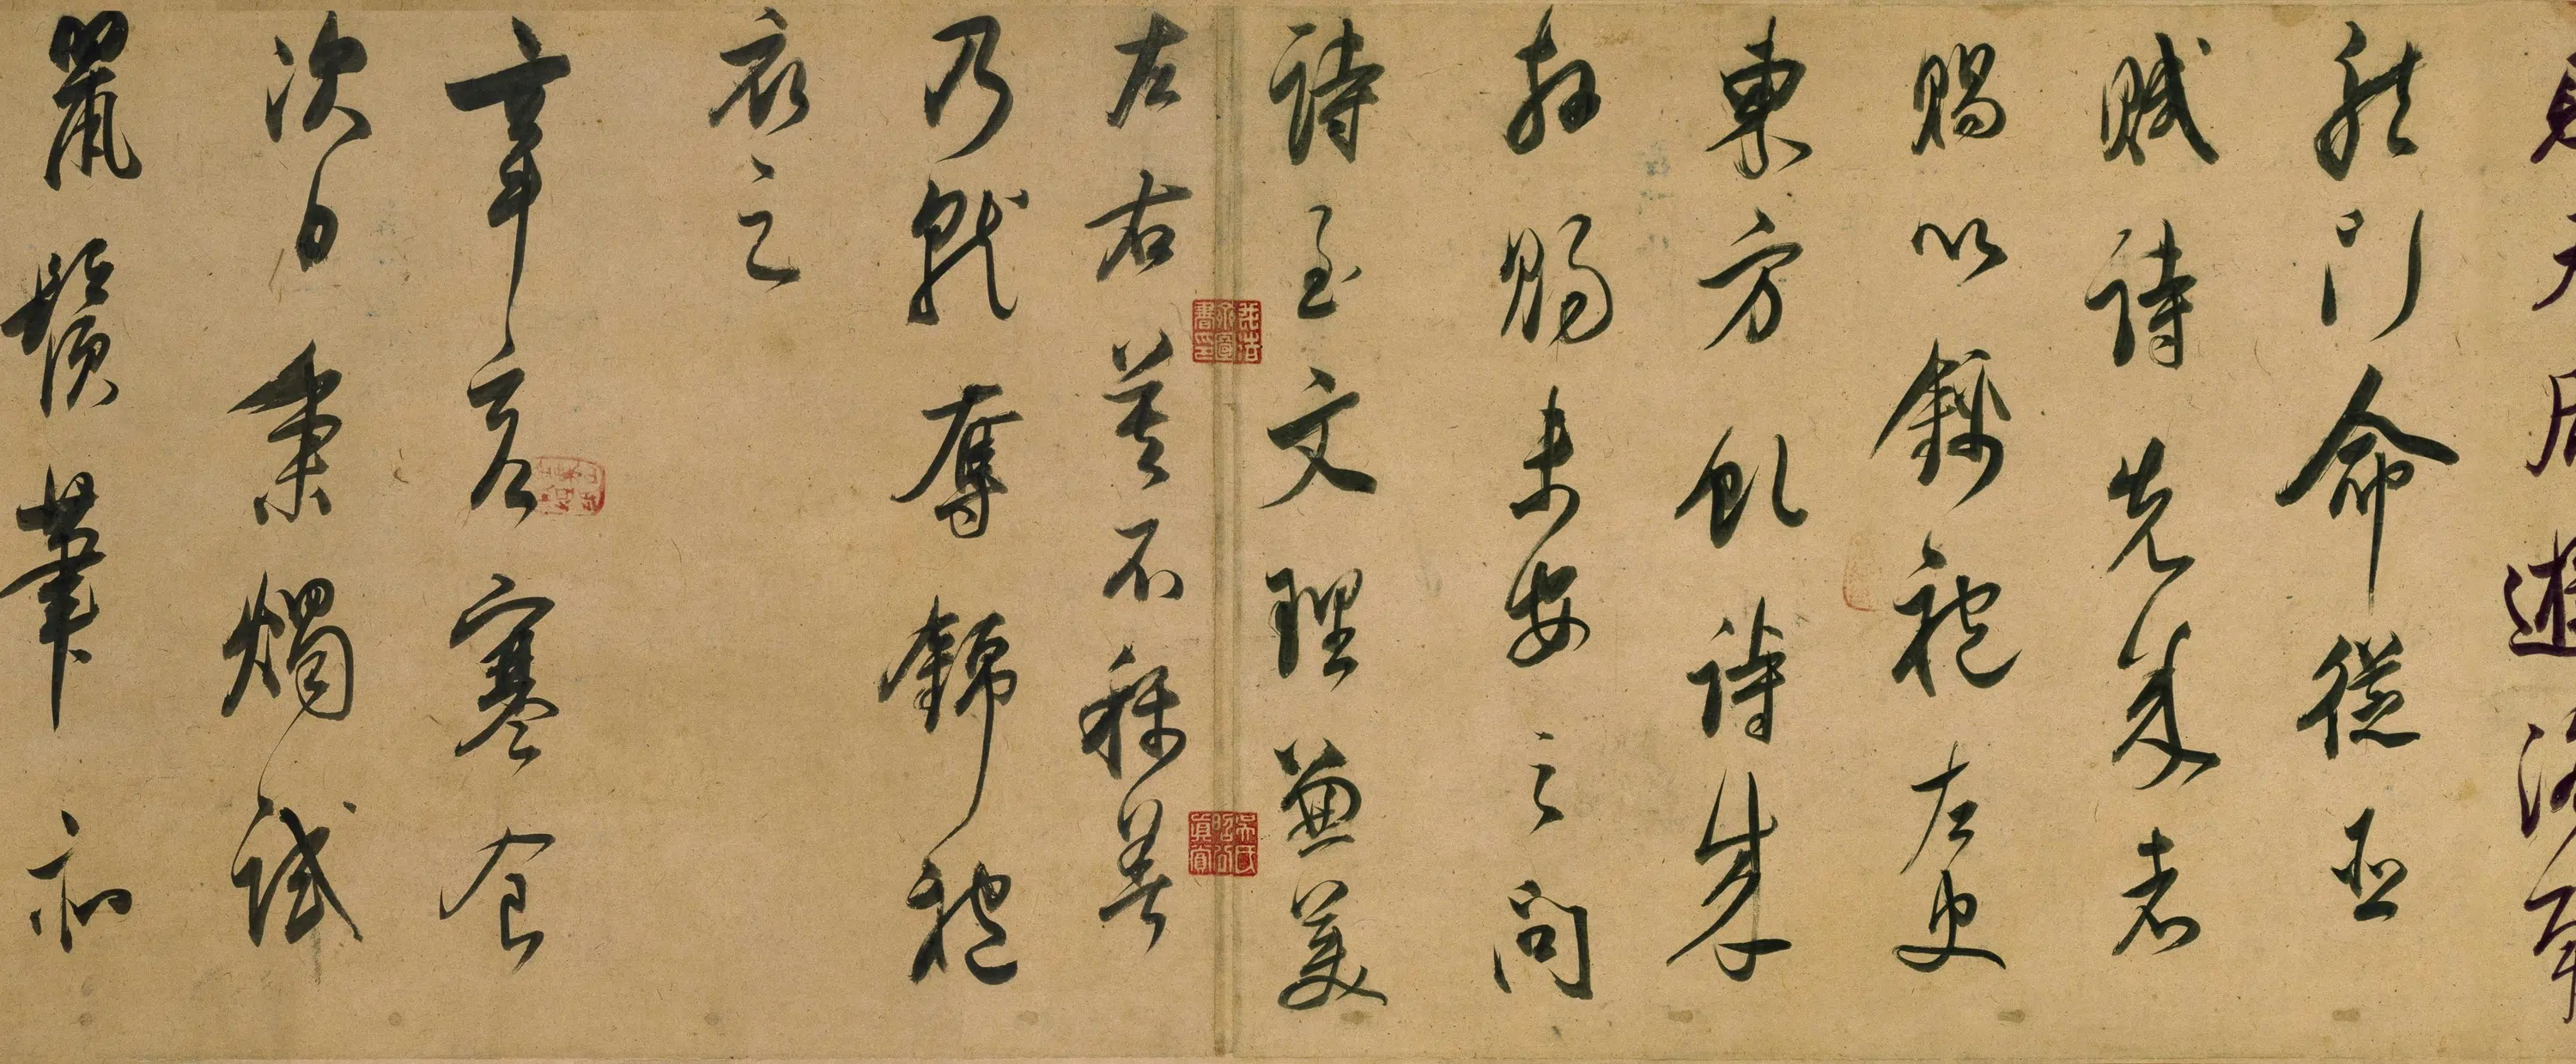 則天后遊洛南
龍門命從臣
賦詩先成者
賜以錦袍左史
東方虬詩成
拜賜未安之問
詩至文理兼美
左右莫不稱善
乃就奪錦袍
衣之
辛亥寒食
次日秉燭試
鼠鬚筆